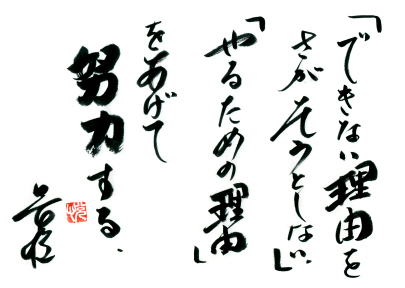 「できない理由を
さがそうとしない」
「やるための理由」
をあげて
努力する、